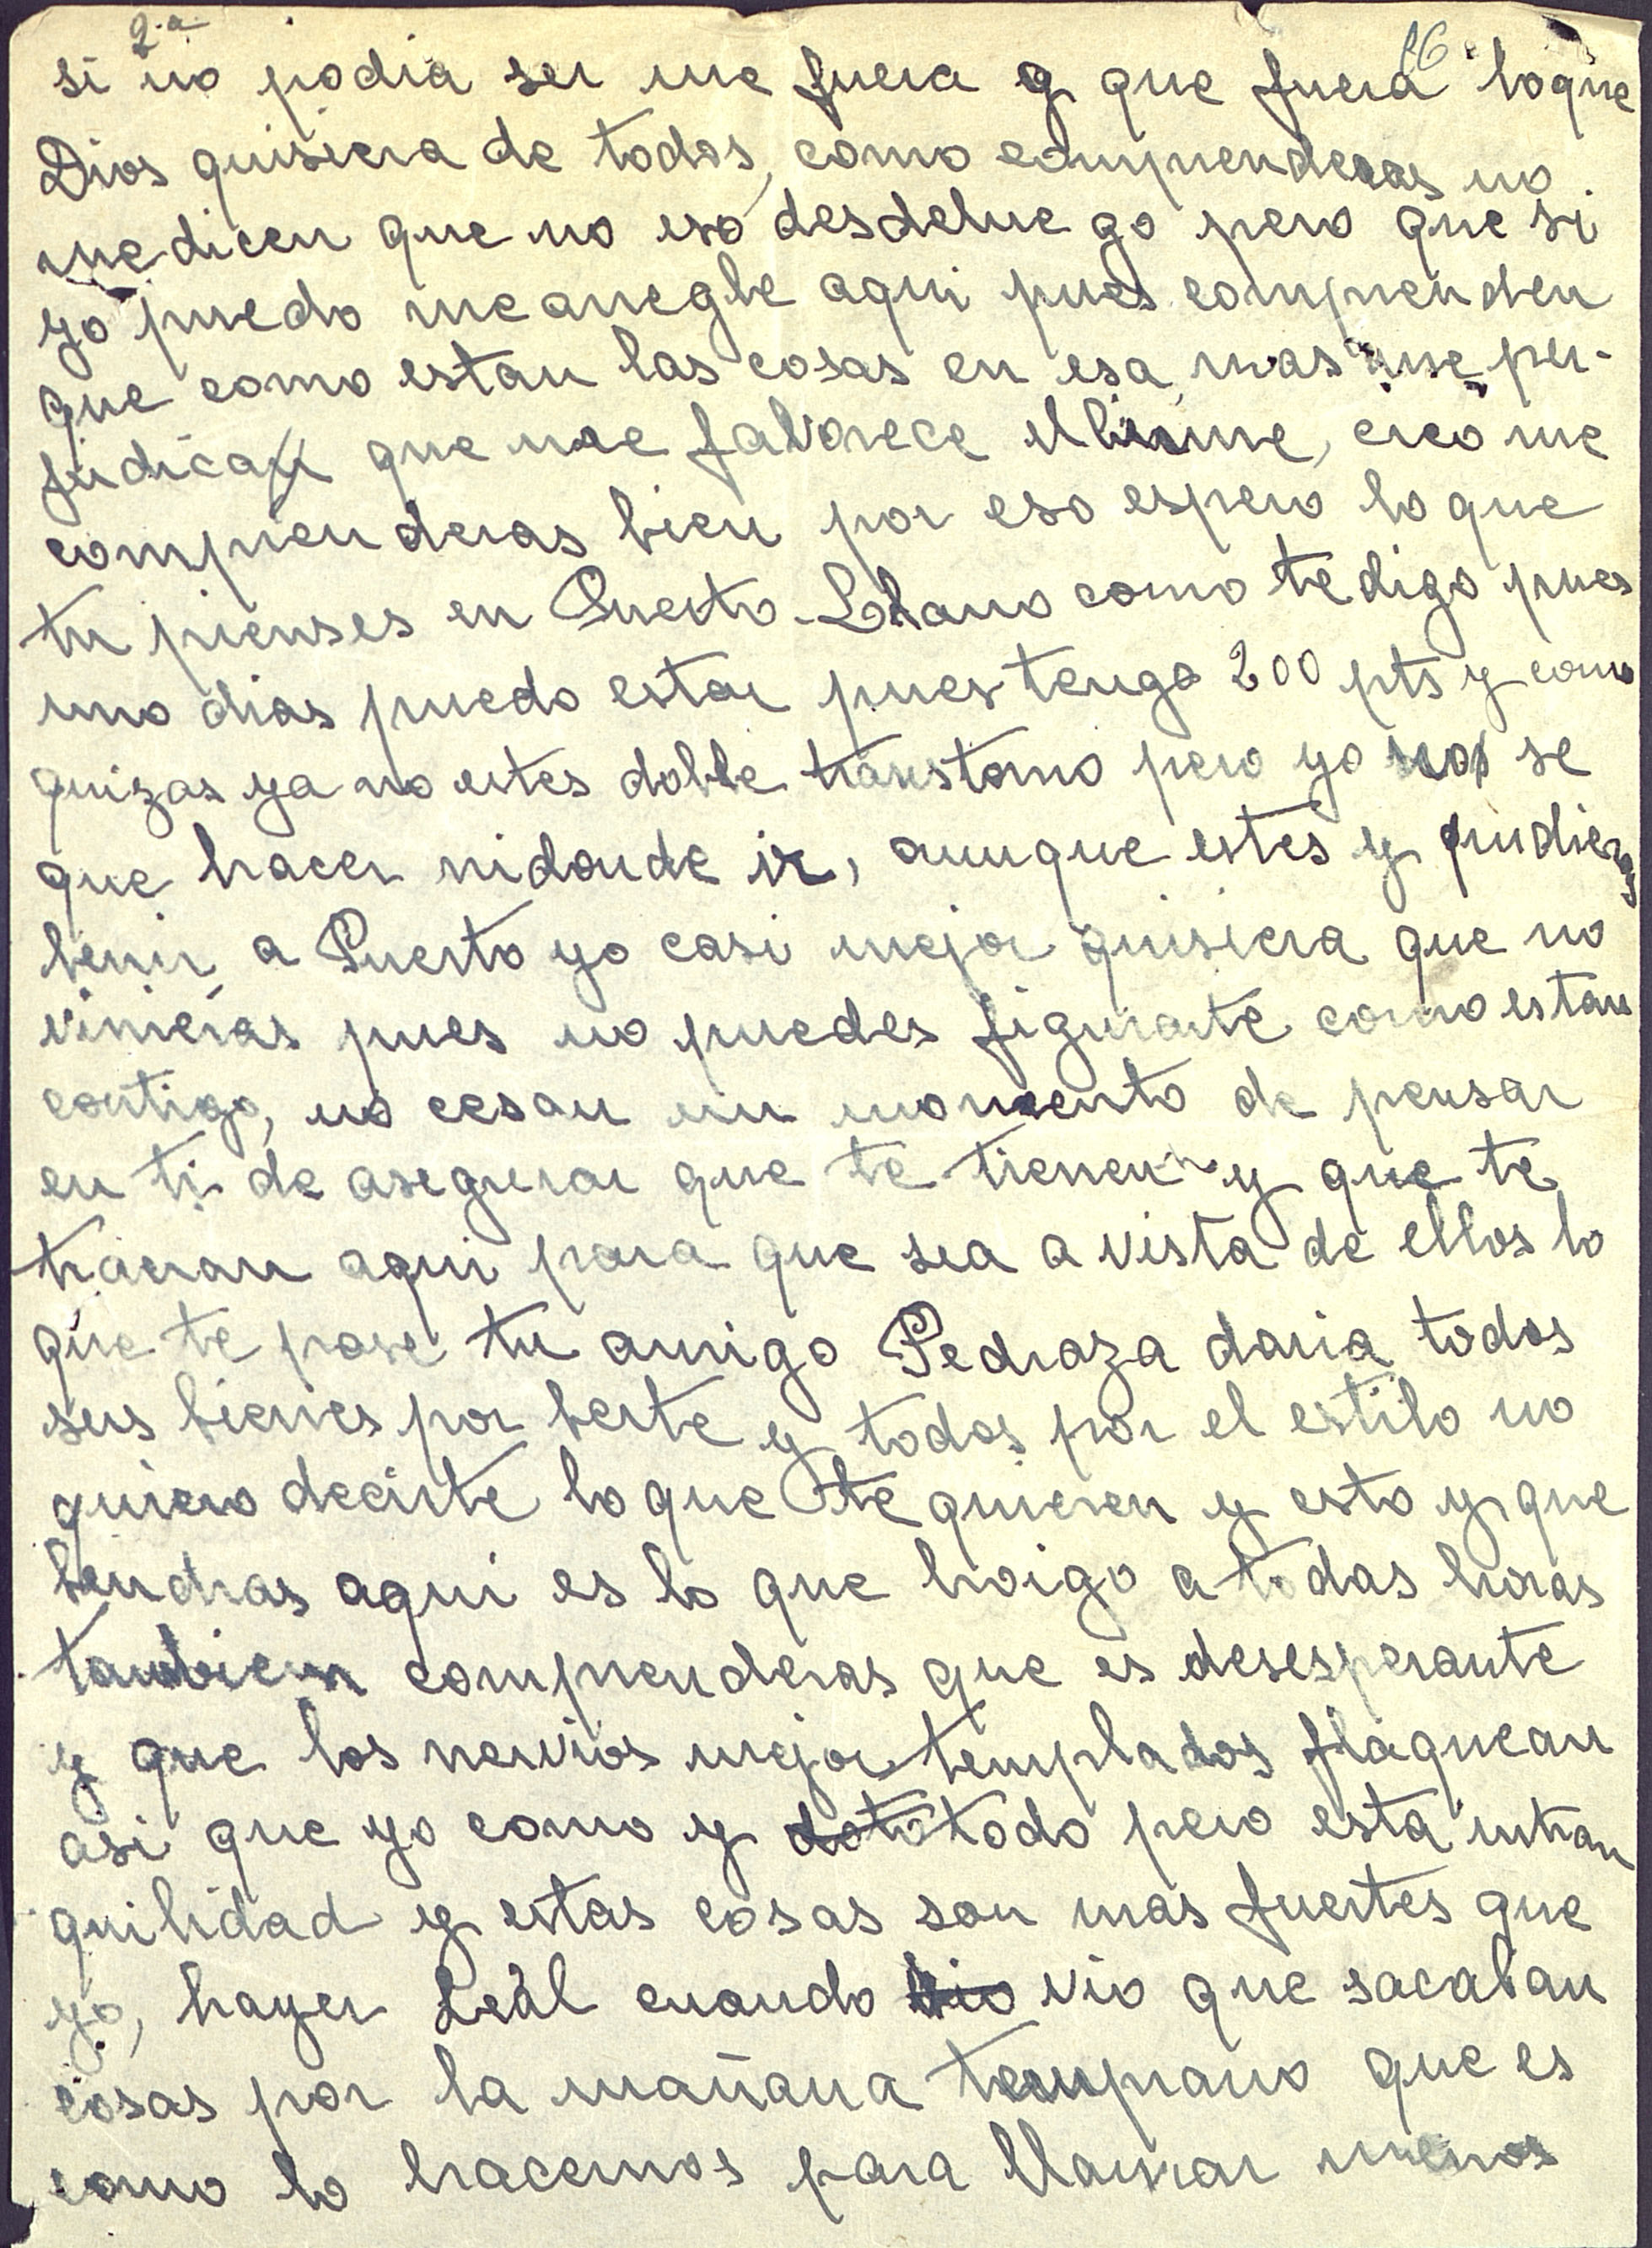 2.a 16
si no podia ser me fuera y que fuera loque
Dios quisiera de todos, como comprenderas no
me dicen que no eso desdelue go pero que si
yo puedo me aregle aqui pues comprenden
que como estan las cosas en esa, mas me per-
judica que me faborece el irme, creo me
comprenderas bien por eso espero lo que
tu pienses en Puerto-Llano como te digo pues
uno dias puedo estar pues tengo 200 pts y como
quizas ya no estes doble transtorno pero yo no se
que hacer nidonde ir, aunque estes y pudieras
benir a Puerto yo casi mejor quisiera que no
vinieras pues no puedes figurarte como estan
contigo, no cesan un momento de pensar
en ti de asegurar que te tienen y que te
traeran aqui para que sea a vista de ellos lo
que te pase tu amigo Pedraza daria todos
sus bienes por berte y todos por el estilo no
quiero decirte lo que te quieren y esto y que
bendras aqui es lo que hoigo a todas horas
tambien comprenderas que es desesperante
y que los nervios mejor templados flaquean
asi que yo como y todo pero esta intran
quilidad y estas cosas son mas fuertes que
yo, hayer Leal cuando vio vio que sacaban
cosas por la mañana temprano que es
como lo hacemos para llamar menos